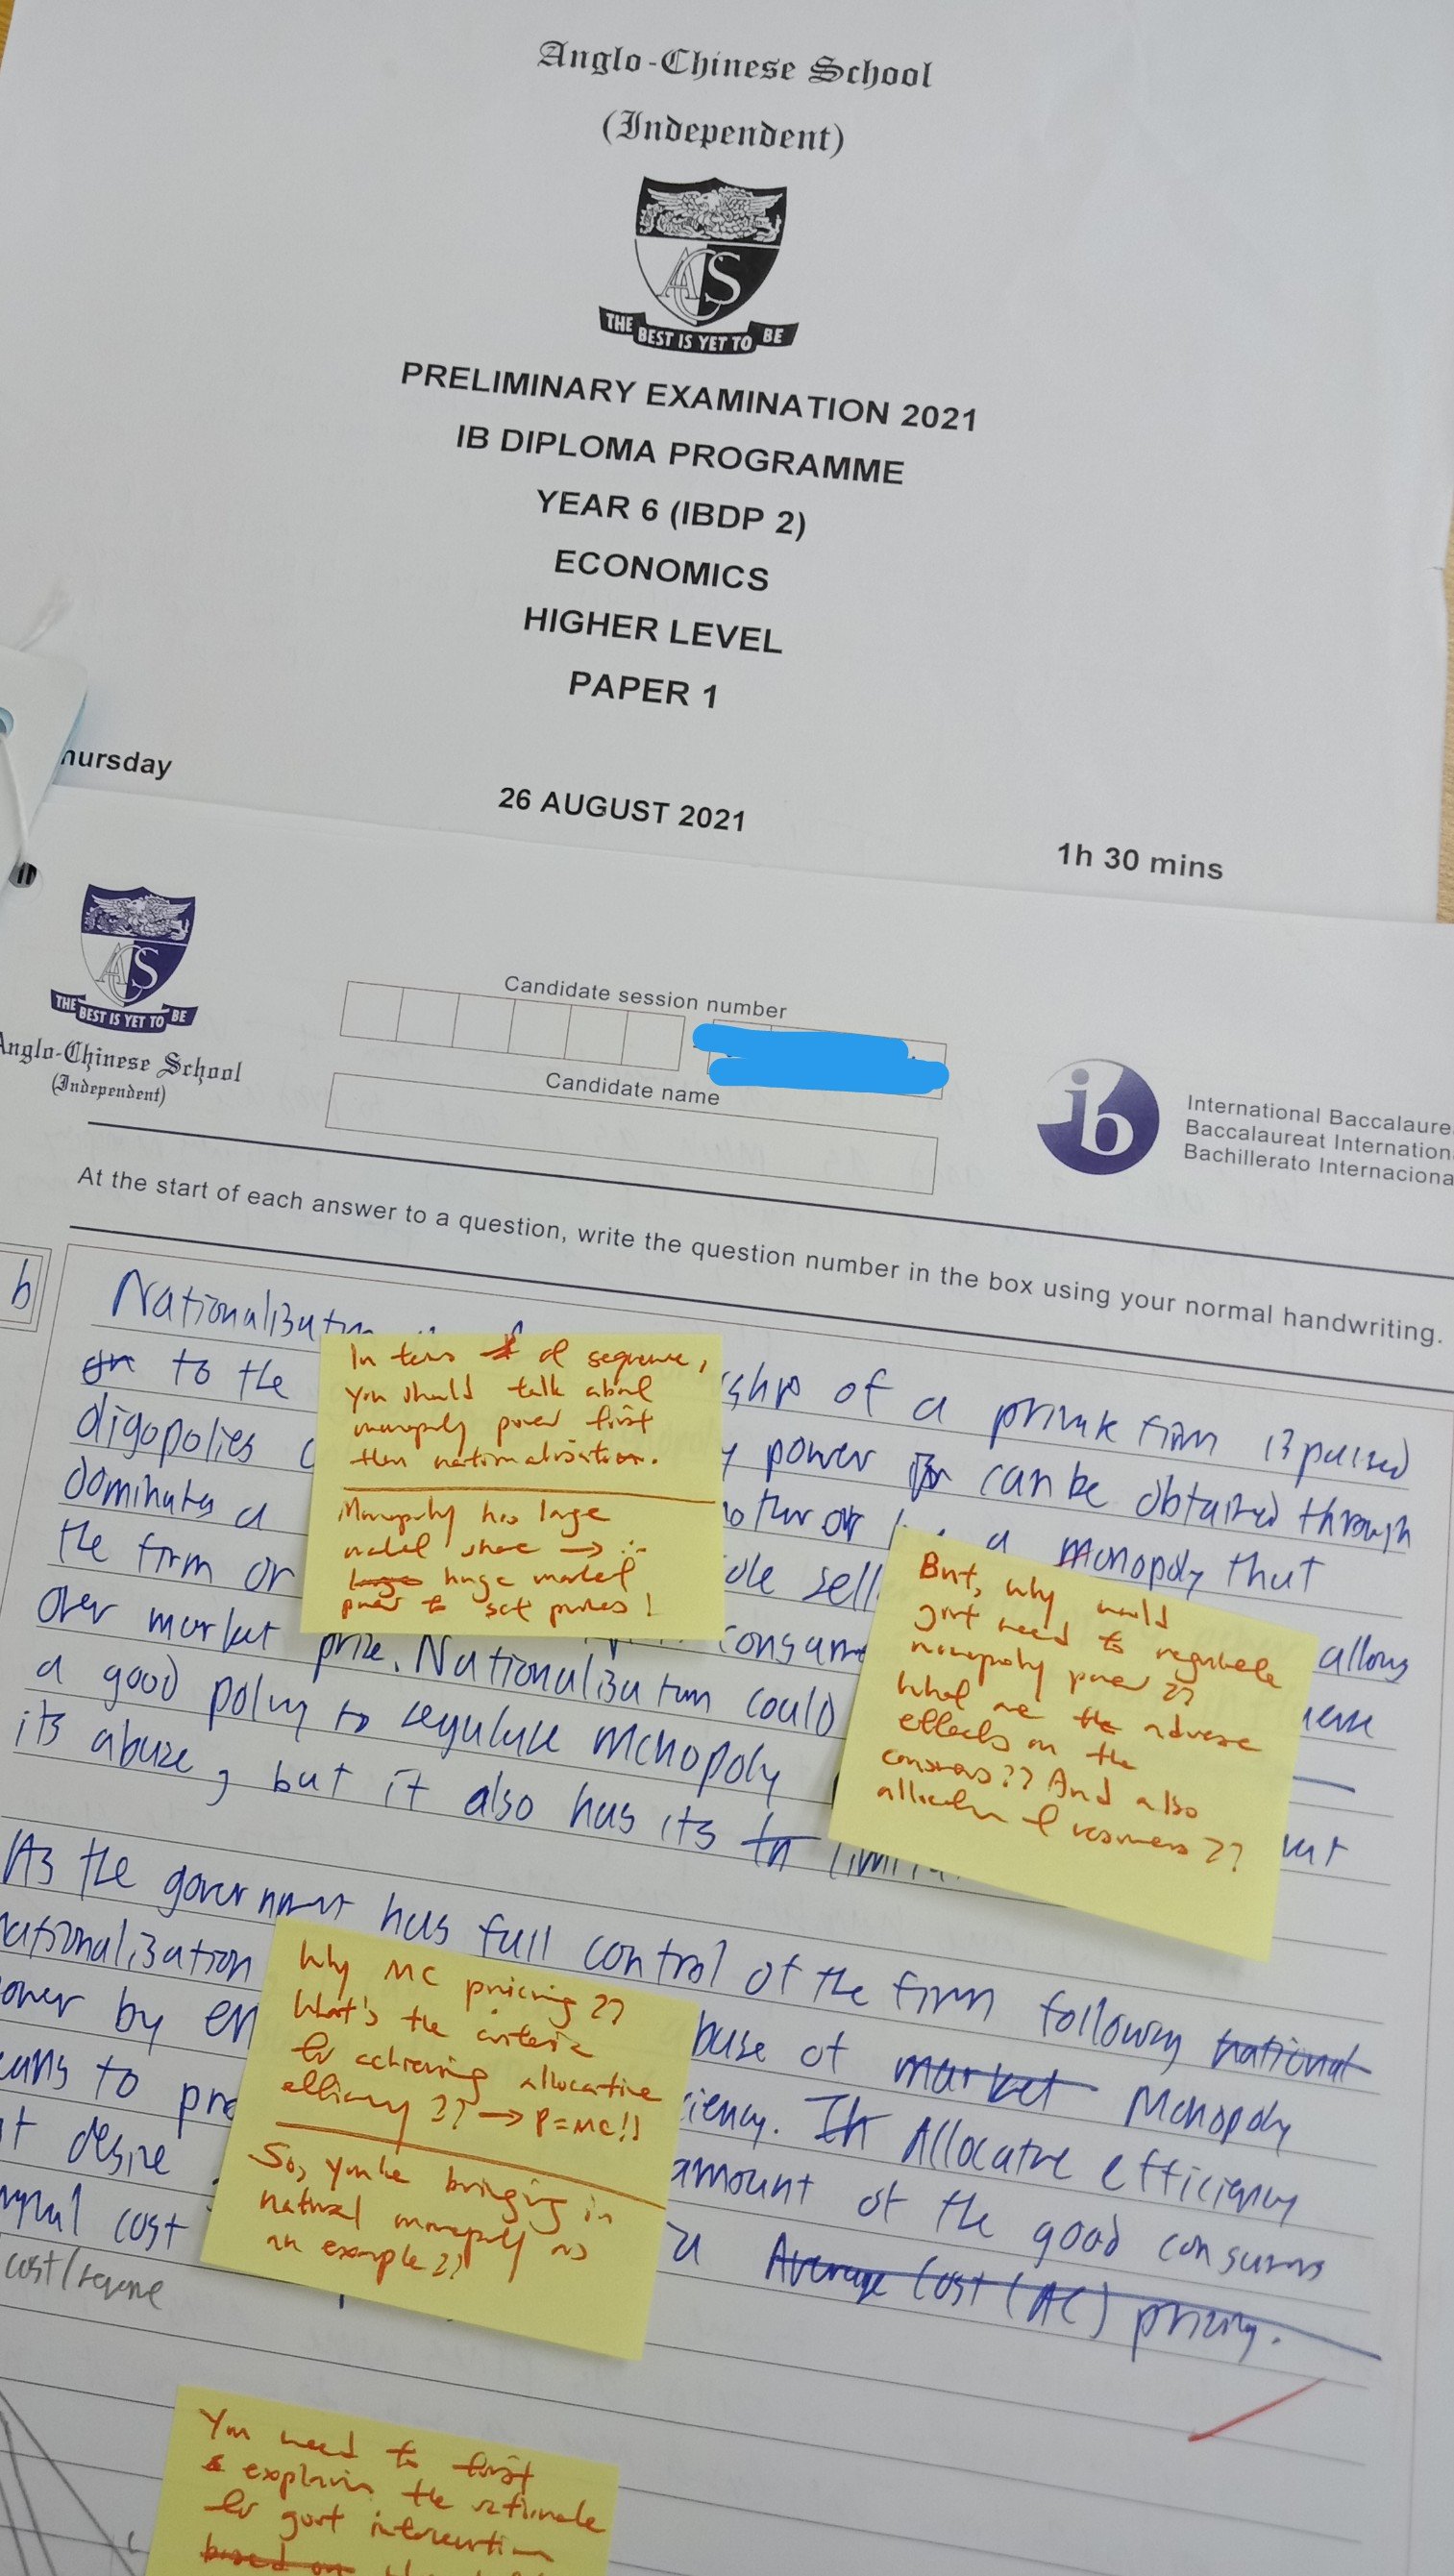 Anglo-Chinese School
(Independent)
ACS
THE BEST IS YET TO BE
PRELIMINARY EXAMINATION 2021
IB DIPLOMA PROGRAMME
YEAR 6 (IBDP 2)
ECONOMICS
HIGHER LEVEL
PAPER 1
hursday
26 AUGUST 2021
1h 30 mins
ACS
THE BEST IS YET TO BE
Anglo-Chinese School
(Independent)
Candidate session number
Candidate name
ib
International Baccalaure
Baccalaureat Internation
Bachillerato Internaciona
At the start of each answer to a question, write the question number in the box using your normal handwriting.
b
to the ship of a private firm is passed
power can be obtained through
dominates a a monopoly that
the firm or ole sell allows
over market price. Nationalization could
a good policy to regulate monopoly
its abuse, but it also has its
As the government has full control of the firm following
nationalization buse of market Monopoly
ower by en ciency. Allocative efficiency
eans to pro amount of the good consumers
t desire Average Cost (AC) pricing.
cost
cost/revenue
In terms of sequence,
you should talk about
monopoly power first
then nationalisation.
Monopoly has large
market share → ∴
huge market
power to set prices!
But, why would
govt need to regulate
monopoly power ??
What are the adverse
effects on the
consumers?? And also
allocation of resources ??
Why MC pricing ??
What's the criteria
for achieving allocative
efficiency ?? → P=MC!!
So, you're bringing in
natural monopoly as
an example??
You need to first
explain the rationale
for govt intervention
based on